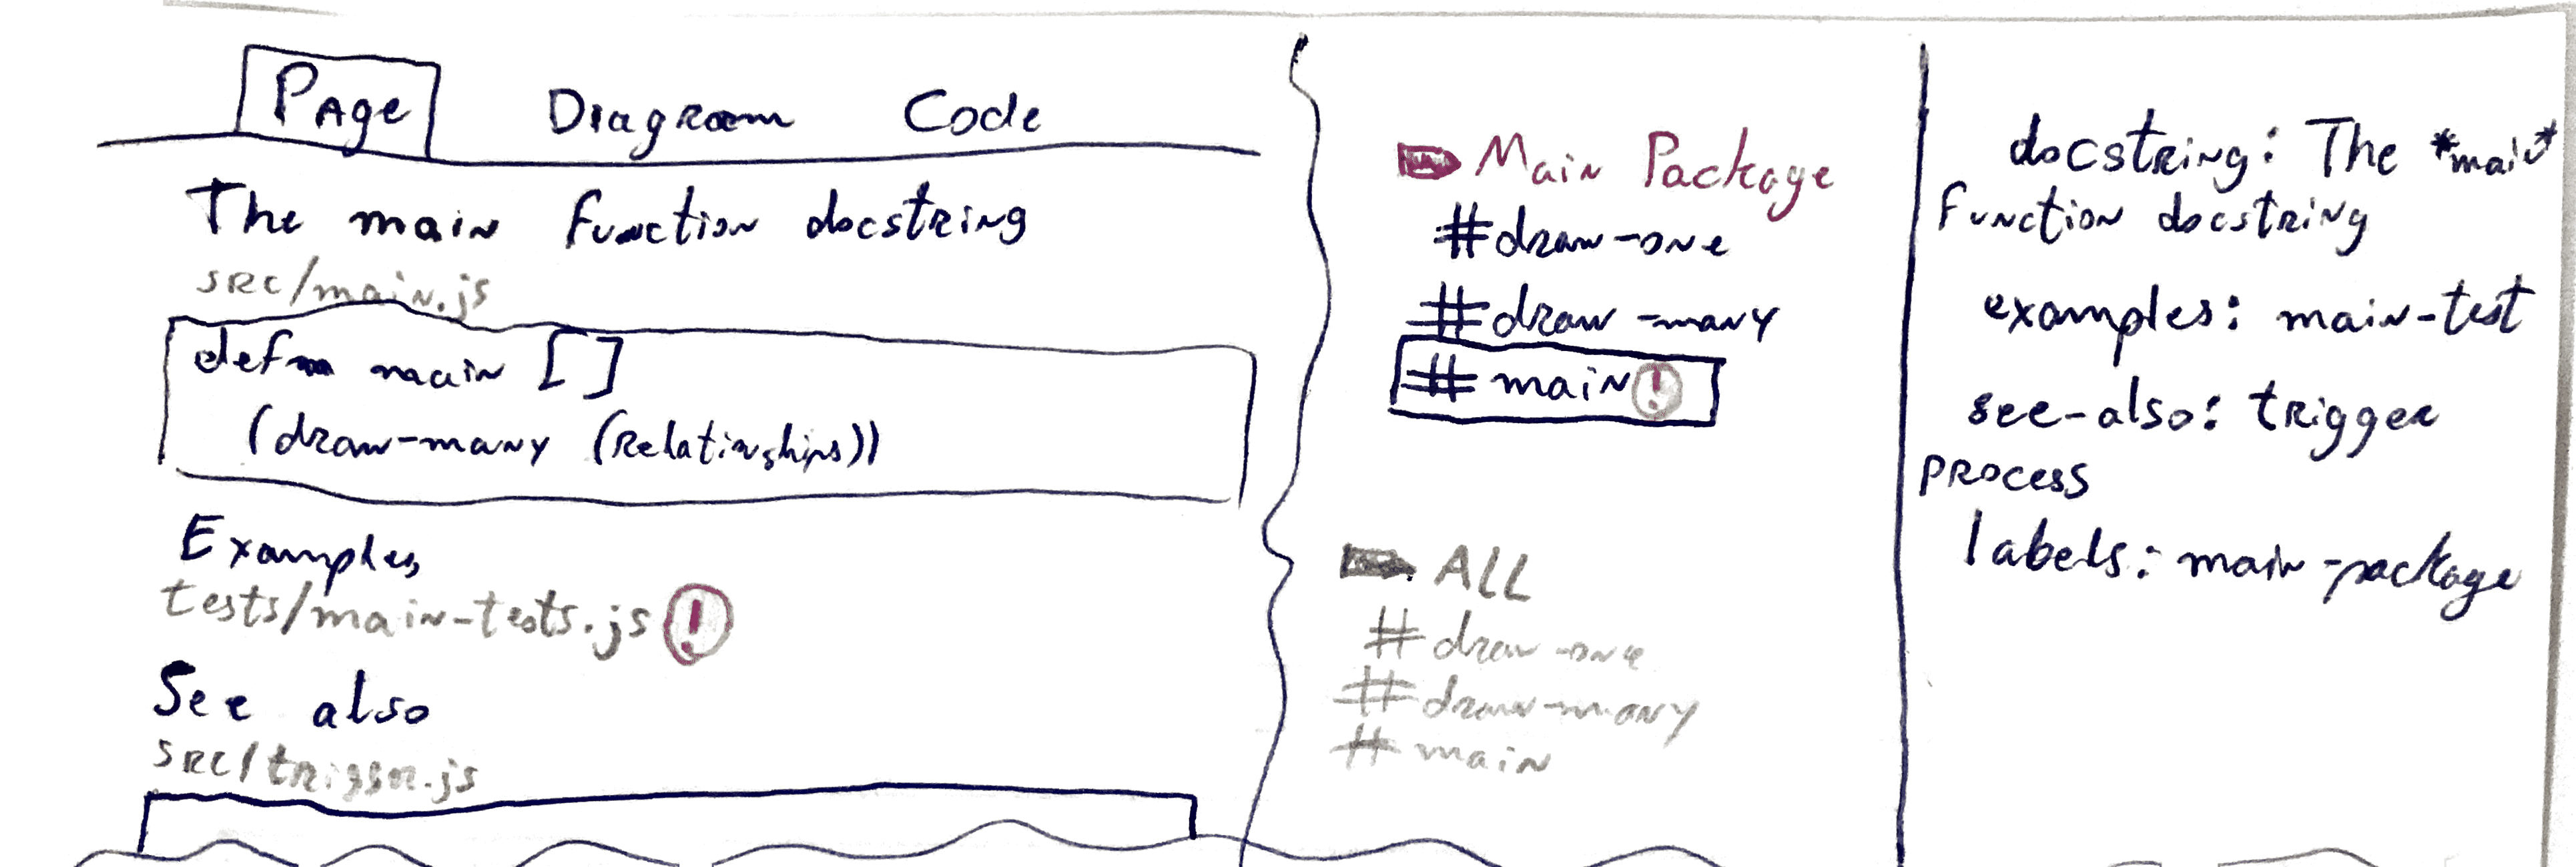 Page Diagram Code
The main function docstring
src/main.js
defn main []
(draw-many (relationships))
Examples
tests/main-tests.js !
See also
src/trigger.js
Main Package
#draw-one
#draw-many
#main !
ALL
#draw-one
#draw-many
#main
docstring: The *main*
function docstring
examples: main-test
see-also: trigger
process
labels: main-package